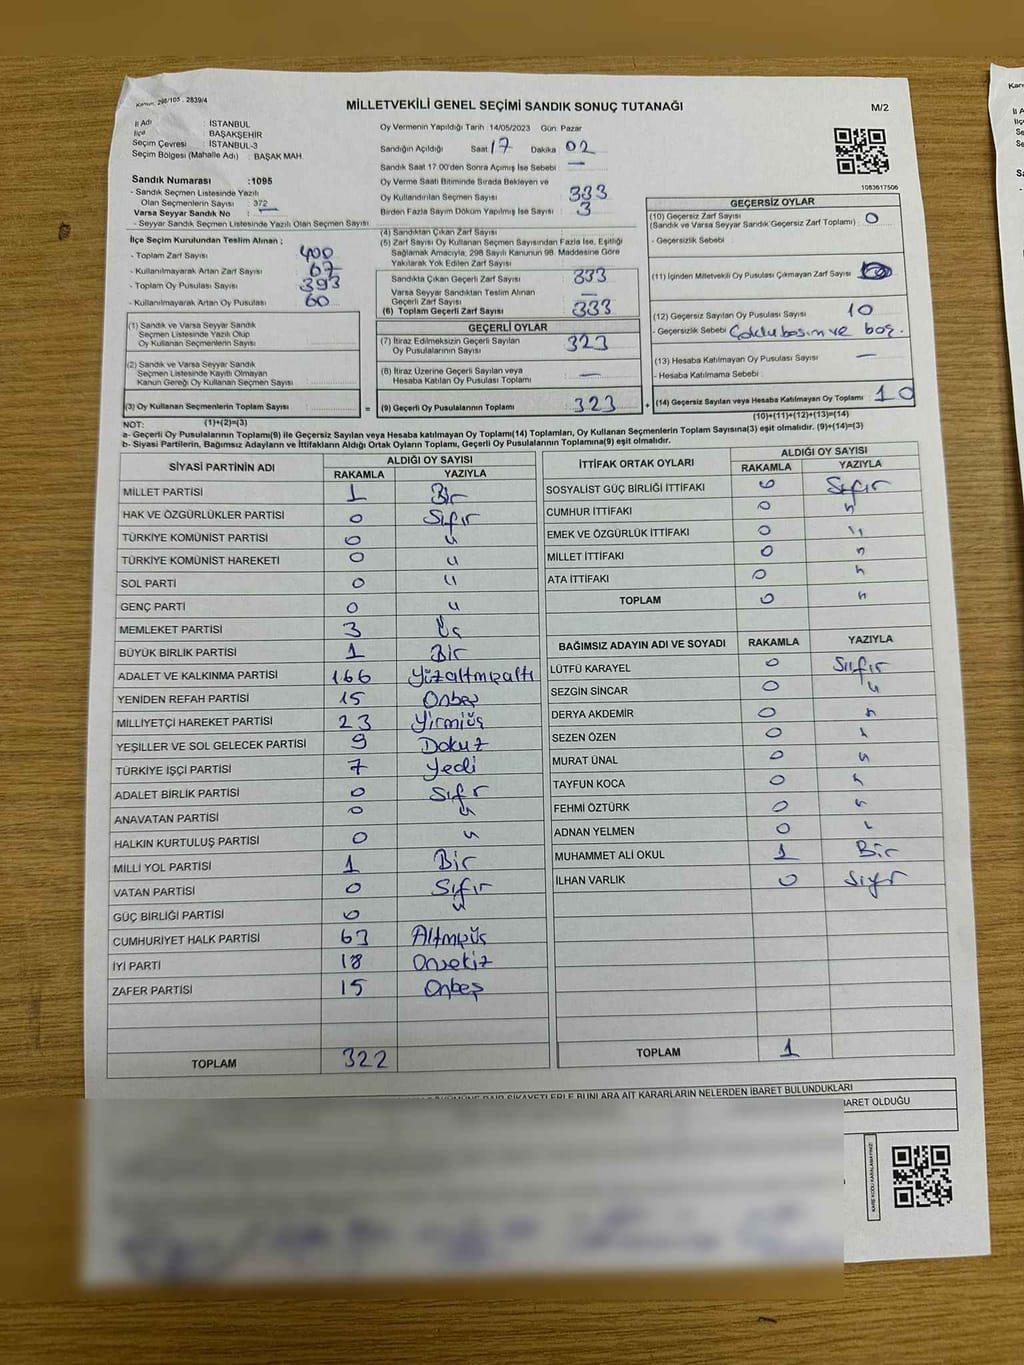 Kanun, 298/105 . 2839/4
MİLLETVEKİLİ GENEL SEÇİMİ SANDIK SONUÇ TUTANAĞI
M/2
İl Adı : İSTANBUL
İlçe : BAŞAKŞEHİR
Seçim Çevresi : İSTANBUL-3
Seçim Bölgesi (Mahalle Adı) : BAŞAK MAH.
Sandık Numarası :1095
- Sandık Seçmen Listesinde Yazılı
Olan Seçmenlerin Sayısı : 372
Varsa Seyyar Sandık No : —
- Seyyar Sandık Seçmen Listesinde Yazılı Olan Seçmen Sayısı
İlçe Seçim Kurulundan Teslim Alınan ;
- Toplam Zarf Sayısı 400
- Kullanılmayarak Artan Zarf Sayısı 67
- Toplam Oy Pusulası Sayısı 393
- Kullanılmayarak Artan Oy Pusulası 60
(1) Sandık ve Varsa Seyyar Sandık
Seçmen Listesinde Yazılı Olup
Oy Kullanan Seçmenlerin Sayısı
(2) Sandık ve Varsa Seyyar Sandık
Seçmen Listesinde Kayıtlı Olmayan
Kanun Gereği Oy Kullanan Seçmen Sayısı
(3) Oy Kullanan Seçmenlerin Toplam Sayısı :
(1)+(2)=(3)
Oy Vermenin Yapıldığı Tarih :14/05/2023 Gün: Pazar
Sandığın Açıldığı Saat 17 Dakika 02
Sandık Saat 17.00'den Sonra Açımış İse Sebebi : —
Oy Verme Saati Bitiminde Sırada Bekleyen ve
Oy Kullandırılan Seçmen Sayısı : 333
Birden Fazla Sayım Döküm Yapılmış İse Sayısı : 3
(4) Sandıktan Çıkan Zarf Sayısı :
(5) Zarf Sayısı Oy Kullanan Seçmen Sayısından Fazla İse, Eşitliği
Sağlamak Amacıyla, 298 Sayılı Kanunun 98. Maddesine Göre
Yakılarak Yok Edilen Zarf Sayısı
Sandıkta Çıkan Geçerli Zarf Sayısı : 333
Varsa Seyyar Sandıktan Teslim Alınan
Geçerli Zarf Sayısı : —
(6) Toplam Geçerli Zarf Sayısı : 333
GEÇERLİ OYLAR
(7) İtiraz Edilmeksizin Geçerli Sayılan
Oy Pusulalarının Sayısı : 323
(8) İtiraz Üzerine Geçerli Sayılan veya
Hesaba Katılan Oy Pusulası Toplamı : —
= (9) Geçerli Oy Pusulalarının Toplamı : 323
GEÇERSİZ OYLAR
1083617506
(10) Geçersiz Zarf Sayısı
(Sandık ve Varsa Seyyar Sandık Geçersiz Zarf Toplamı) : 0
- Geçersizlik Sebebi :
(11) İçinden Milletvekili Oy Pusulası Çıkmayan Zarf Sayısı
(12) Geçersiz Sayılan Oy Pusulası Sayısı : 10
- Geçersizlik Sebebi : Çoklu basım ve boş.
(13) Hesaba Katılmayan Oy Pusulası Sayısı : —
- Hesaba Katılmama Sebebi :
+ (14) Geçersiz Sayılan veya Hesaba Katılmayan Oy Toplamı : 10
(10)+(11)+(12)+(13)=(14)
NOT:
a- Geçerli Oy Pusulalarının Toplamı(9) ile Geçersiz Sayılan veya Hesaba katılmayan Oy Toplamı(14) Toplamları, Oy Kullanan Seçmenlerin Toplam Sayısına(3) eşit olmalıdır. (9)+(14)=(3)
b- Siyasi Partilerin, Bağımsız Adayların ve İttifakların Aldığı Ortak Oyların Toplamı, Geçerli Oy Pusulalarının Toplamına(9) eşit olmalıdır.
SİYASİ PARTİNİN ADI ALDIĞI OY SAYISI
RAKAMLA YAZIYLA
MİLLET PARTİSİ 1 Bir
HAK VE ÖZGÜRLÜKLER PARTİSİ 0 Sıfır
TÜRKİYE KOMÜNİST PARTİSİ 0 "
TÜRKİYE KOMÜNİST HAREKETİ 0 "
SOL PARTİ 0 "
GENÇ PARTİ 0 "
MEMLEKET PARTİSİ 3 Üç
BÜYÜK BİRLİK PARTİSİ 1 Bir
ADALET VE KALKINMA PARTİSİ 166 Yüzaltmışaltı
YENİDEN REFAH PARTİSİ 15 Onbeş
MİLLİYETÇİ HAREKET PARTİSİ 23 Yirmiüç
YEŞİLLER VE SOL GELECEK PARTİSİ 9 Dokuz
TÜRKİYE İŞÇİ PARTİSİ 7 Yedi
ADALET BİRLİK PARTİSİ 0 Sıfır
ANAVATAN PARTİSİ 0 "
HALKIN KURTULUŞ PARTİSİ 0 "
MİLLİ YOL PARTİSİ 1 Bir
VATAN PARTİSİ 0 Sıfır
GÜÇ BİRLİĞİ PARTİSİ 0 "
CUMHURİYET HALK PARTİSİ 63 Altmışüç
İYİ PARTİ 18 Onsekiz
ZAFER PARTİSİ 15 Onbeş
TOPLAM 322
İTTİFAK ORTAK OYLARI ALDIĞI OY SAYISI
RAKAMLA YAZIYLA
SOSYALİST GÜÇ BİRLİĞİ İTTİFAKI 0 Sıfır
CUMHUR İTTİFAKI 0 "
EMEK VE ÖZGÜRLÜK İTTİFAKI 0 "
MİLLET İTTİFAKI 0 "
ATA İTTİFAKI 0 "
TOPLAM 0 "
BAĞIMSIZ ADAYIN ADI VE SOYADI RAKAMLA YAZIYLA
LÜTFÜ KARAYEL 0 Sıfır
SEZGİN SİNCAR 0 "
DERYA AKDEMİR 0 "
SEZEN ÖZEN 0 "
MURAT ÜNAL 0 "
TAYFUN KOCA 0 "
FEHMİ ÖZTÜRK 0 "
ADNAN YELMEN 0 "
MUHAMMET ALİ OKUL 1 Bir
İLHAN VARLIK 0 Sıfır
TOPLAM 1
DAİR ŞİKAYETLERLE BUNLARA AİT KARARLARIN NELERDEN İBARET BULUNDUKLARI
BARET OLDUĞU
KARE KODU KARALAMAYINIZ!